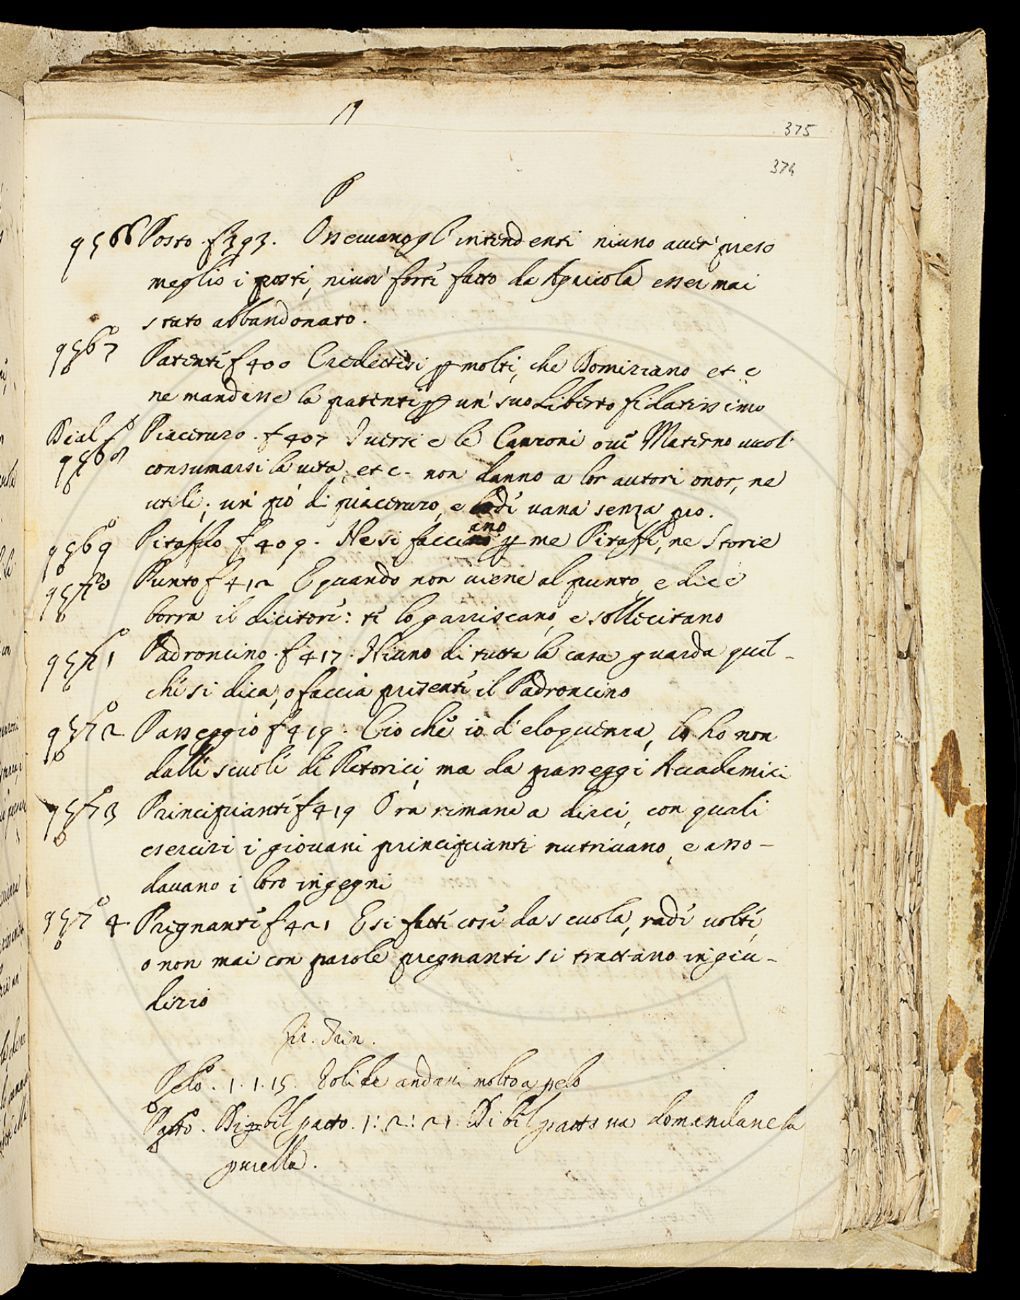 375
374
P
9566 Posto. f 393. Osservano gl'intendenti niuno aver preso
meglio i posti, niun' forte fatto da Agricola esser mai
stato abbandonato.
9567 Patente f 400 Credettesi p molti, che Domiziano etc
ne mandasse la patente p un' suo Liberto fidatissimo
Dial
9568 Piaceruzo. f 407 I versi e le Canzoni ove Materno vuol
consumarsi la vita, etc. non danno a lor autori onor, ne
utile; un' pò di piaceruzo, e lode vana senza pro.
9569 Pitaffio f 409. Ne si facciano p me Pitaffi, ne Storie
9570 Punto f 412 E quando non viene al punto, e dice
borra il dicitore: te lo garriscano, e sollecitano
9571 Padroncino. f 417. Niuno di tutta la casa guarda quel-
che si dica, o faccia presente il Padroncino
9572 Passeggio f 419. Ciò che io d'eloquenza, lo ho non
dalle scuole de Retorici, ma da passeggi Accademici
9573 Principiante f 419 Ora rimane a dirci, con quali
esercizi i giovani principianti nutrivano, e asso-
davano i loro ingegni
9574 Pregnante f 421 E si fatte cose da scuola, rade volte,
o non mai con parole pregnanti si trattano in giu-
dizio
Fir. Trin.
Pelo. 1. 1. 15. andare molto a pelo
Patto. Di bel patto. 1: 2: 21. Di bel patto va domandane la
pulcella.